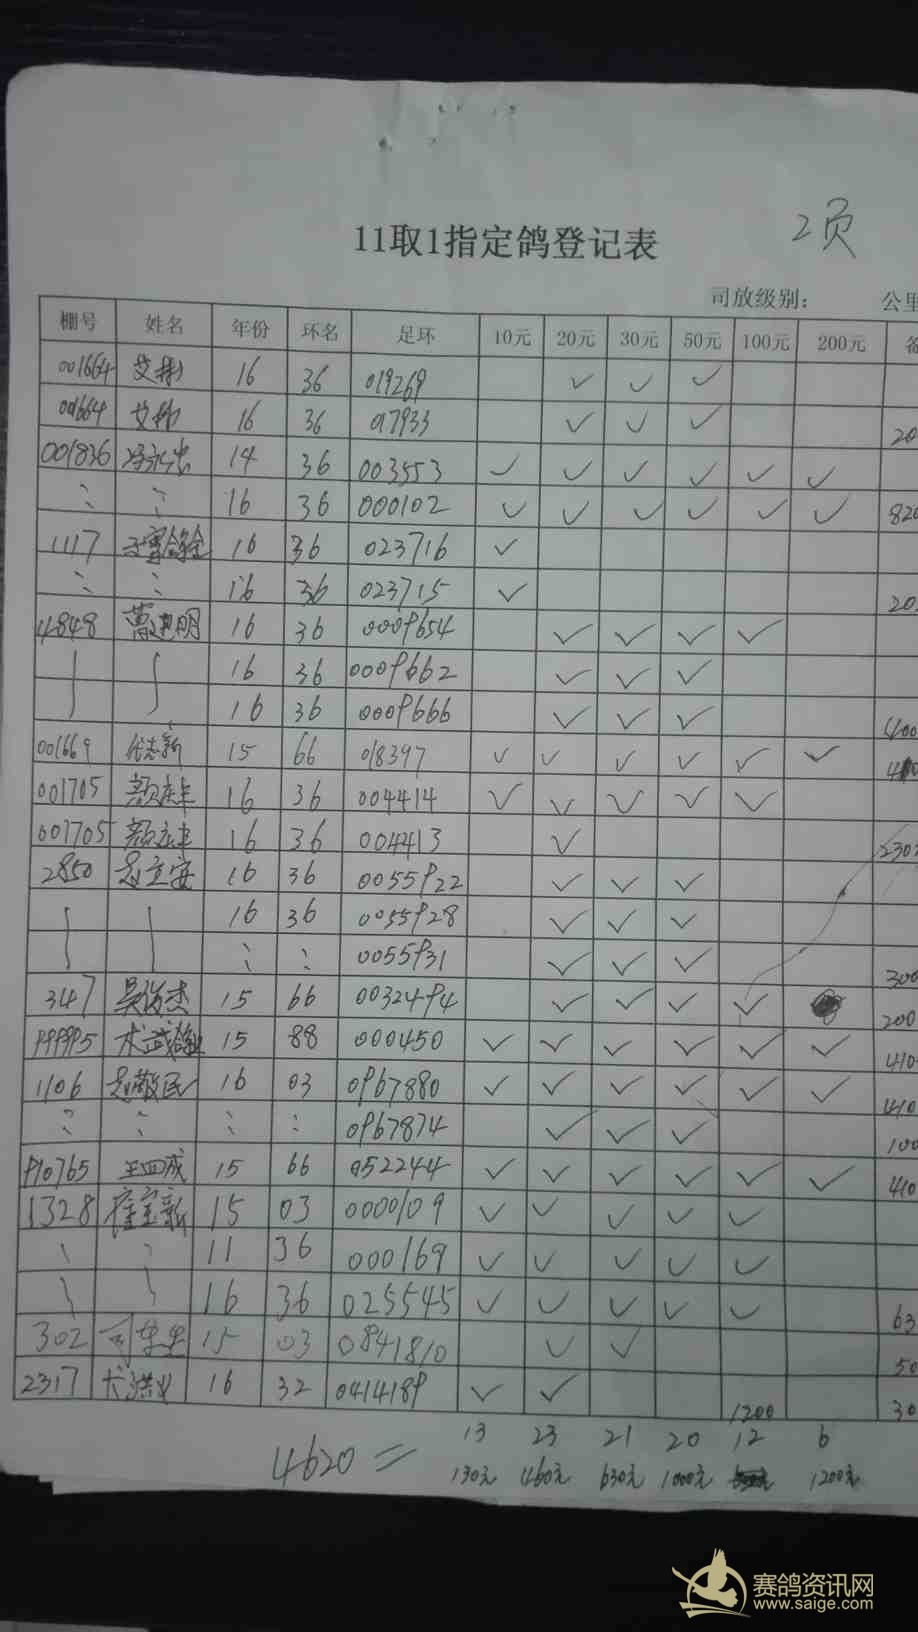 2页
11取1指定鸽登记表
司放级别: 公里
棚号 姓名 年份 环名 足环 10元 20元 30元 50元 100元 200元
001664 16 36 019269 ✓ ✓ ✓
001664 16 36 017933 ✓ ✓ ✓ 20
001836 14 36 003553 ✓ ✓ ✓ ✓ ✓ ✓
16 36 000102 ✓ ✓ ✓ ✓ ✓ ✓ 820
1117 16 36 023716 ✓
16 36 023715 ✓ 20
4848 曹建明 16 36 0009654 ✓ ✓ ✓ ✓
16 36 0009662 ✓ ✓ ✓
16 36 0009666 ✓ ✓ ✓ 400
001669 代志新 15 66 018397 ✓ ✓ ✓ ✓ ✓ ✓
001705 16 36 004414 ✓ ✓ ✓ ✓ ✓
001705 16 36 004413 ✓ 230
2850 赵立安 16 36 0055922 ✓ ✓ ✓
16 36 0055928 ✓ ✓ ✓
0055931 ✓ ✓ ✓ 300
347 吴俊杰 15 66 0032494 ✓ ✓ ✓ ✓ 200
999995 15 88 000450 ✓ ✓ ✓ ✓ ✓ ✓ 410
1106 赵敬民 16 03 0967880 ✓ ✓ ✓ ✓ ✓ ✓ 410
0967874 ✓ ✓ ✓ 100
910765 王四成 15 66 052244 ✓ ✓ ✓ ✓ ✓ ✓ 410
1328 15 03 0000109 ✓ ✓ ✓ ✓ ✓
11 36 000169 ✓ ✓ ✓ ✓ ✓
16 36 025545 ✓ ✓ ✓ ✓ ✓ 63
302 15 03 0841810 ✓ ✓ 50
2317 16 32 0414189 ✓ ✓ 1200 30
13 23 21 20 12 6
4620 = 130元 460元 630元 1000元 1200元
赛鸽资讯网
www.saige.com